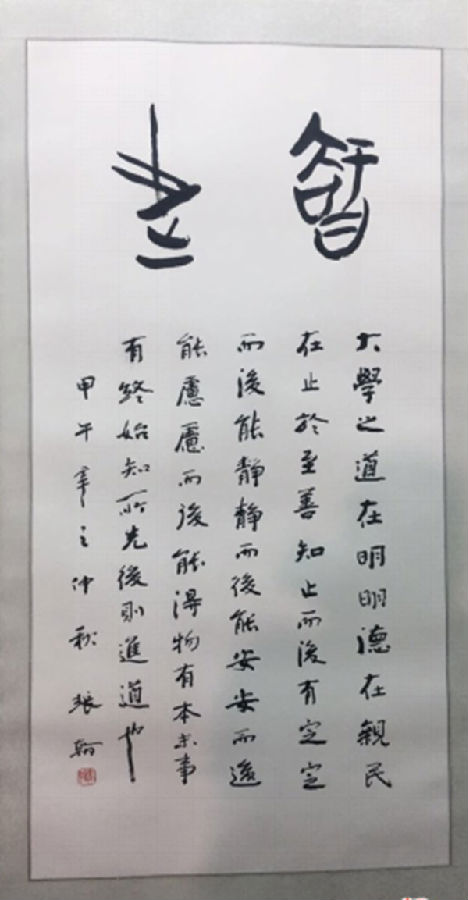 智
大學之道在明明德在親民
在止於至善知止而後有定定
而後能靜靜而後能安安而
能慮慮而後能得物有本末事
有終始知所先後則進道也
甲午年之仲秋 張